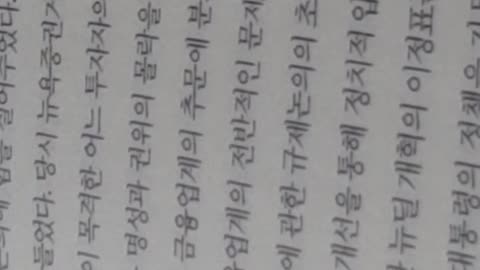 힘을 실어주었다.
들었다. 당시 뉴욕증권
이 목격한 어느 투자자의
명성과 권위의 몰락을
금융업계의 추문에 분
업계의 전반적인 문제
에 관한 규제논의의 초
개선을 통해 정치적 입
뉴딜 개혁의 이정표
대통령의 정책을